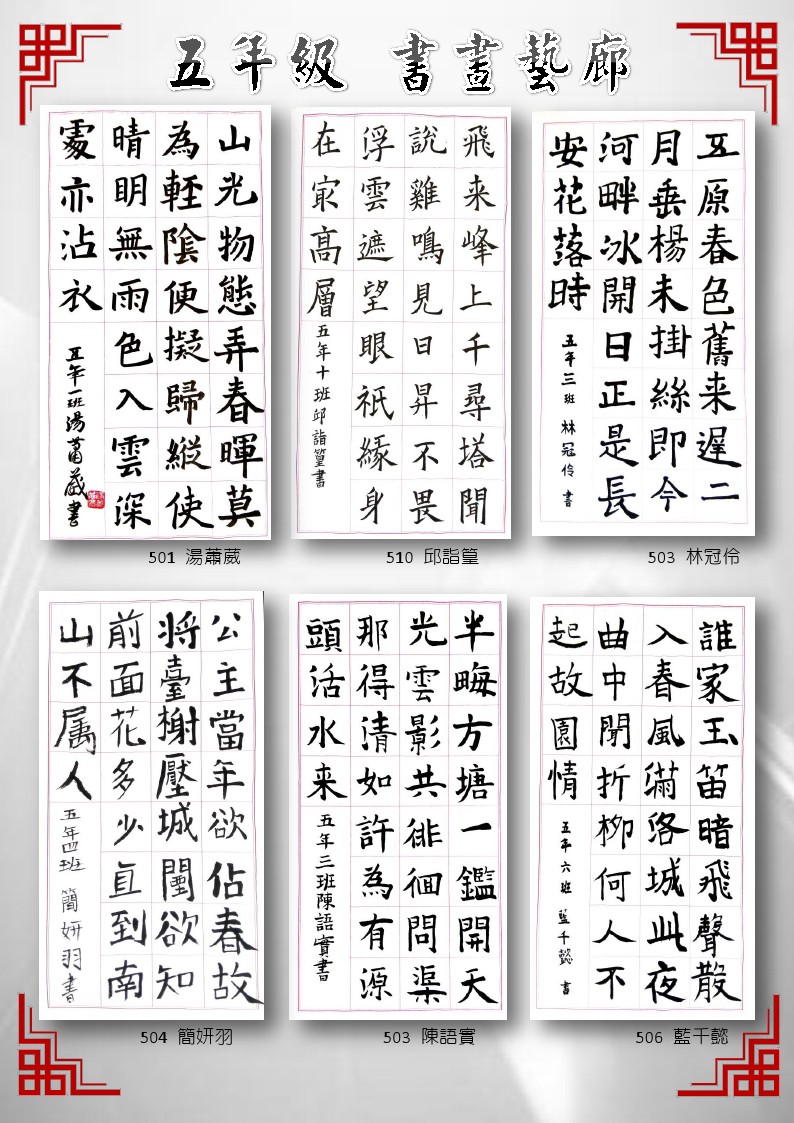 五年級 書畫藝廊
山光物態弄春暉莫
為輕陰便擬歸縱使
晴明無雨色入雲深
處亦沾衣
五年一班湯蕭葳書
501 湯蕭葳
飛来峰上千尋塔聞
說雞鳴見日昇不畏
浮雲遮望眼祇緣身
在冣高層
五年十班邱詣篁書
510 邱詣篁
五原春色舊来遲二
月垂楊未掛絲即今
河畔冰開日正是長
安花落時
五年三班 林冠伶 書
503 林冠伶
公主當年欲佔春故
将臺榭壓城闉欲知
前面花多少直到南
山不属人
五年四班 簡妍羽書
504 簡妍羽
半畮方塘一鑑開天
光雲影共徘徊問渠
那得清如許為有源
頭活水来
五年三班陳語實書
503 陳語實
誰家玉笛暗飛聲散
入春風滿洛城此夜
曲中聞折柳何人不
起故園情
五年六班 藍千懿 書
506 藍千懿